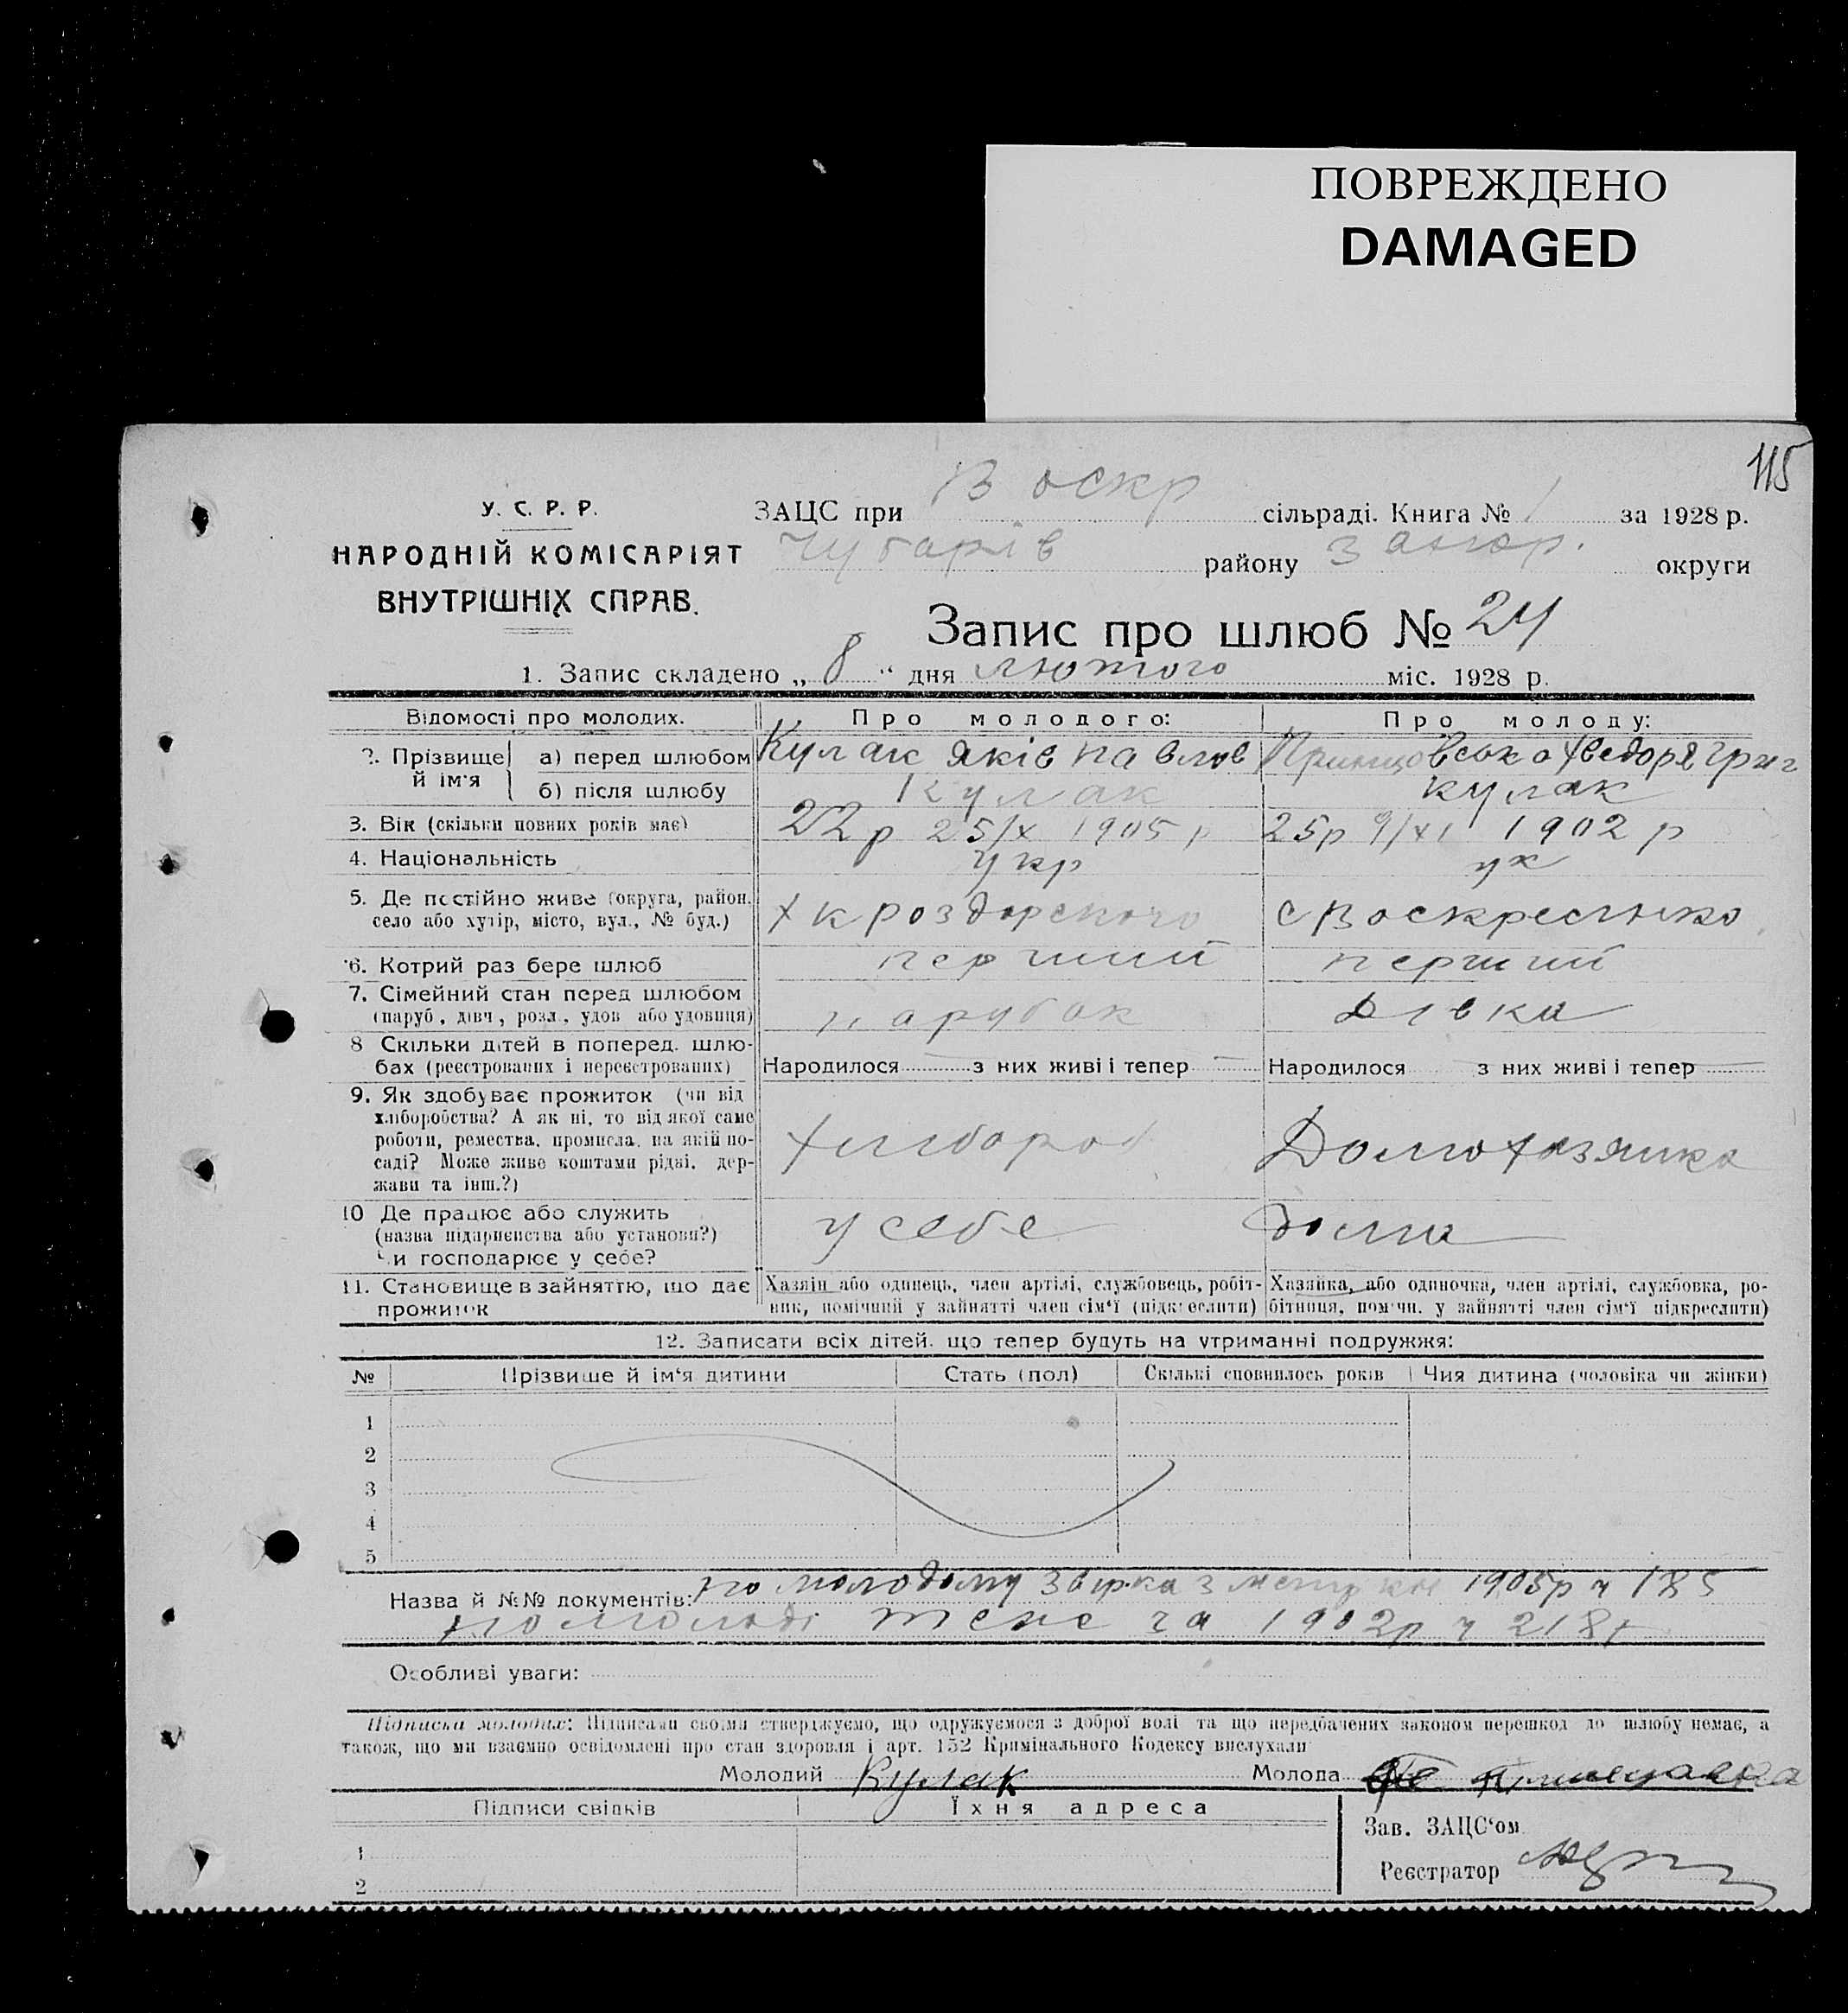 ПОВРЕЖДЕНО
DAMAGED
115
У. С. Р. Р.
НАРОДНІЙ КОМІСАРІЯТ
ВНУТРІШНІХ СПРАВ.
ЗАЦС при Воскр сільраді. Книга № 1 за 1928 р.
Чубарів району Запор. округи
Запис про шлюб № 24
1. Запис складено „ 8 “ дня лютого міс. 1928 р.
Відомості про молодих. Про молодого: Про молоду:
2. Прізвище й ім'я а) перед шлюбом Кулак Яків Павлов Григ
б) після шлюбу Кулак Кулак
3. Вік (скільки повних років має) 22 р 25/X 1905 р 25 р 9/XI 1902 р
4. Національність укр ук
5. Де постійно живе (округа, район,
село або хутір, місто, вул., № буд.) с Воскресенко
6. Котрий раз бере шлюб перший перший
7. Сімейний стан перед шлюбом
(паруб., дівч., розл., удов. або удовиця) парубок Дівка
8 Скільки дітей в поперед. шлю-
бах (реєстрованих і нереєстрованих) Народилося з них живі і тепер Народилося з них живі і тепер
9. Як здобуває прожиток (чи від
хліборобства? А як ні, то від якої саме
роботи, ремества, промисла, на якій по-
саді? Може живе коштами рідні, дер-
жави та інш.?) хлібороб Домохазяйка
10 Де працює або служить
(назва підприємства або установи?)
Чи господарює у себе? у себе дома
11. Становище в зайняттю, що дає
прожиток
Хазяїн або одинець, член артілі, службовець, робіт-
ник, помічний у зайнятті член сім'ї (підкреслити)
Хазяйка, або одиночка, член артілі, службовка, ро-
бітниця, помічн. у зайнятті член сім'ї підкреслити)
12. Записати всіх дітей, що тепер будуть на утриманні подружжя:
№ Прізвище й ім'я дитини Стать (пол) Скількі сповнилось років Чия дитина (чоловіка чи жінки)
1
2
3
4
5
Назва й №№ документів: по молодому 1905р ч 185
по молоді теж за 1902р ч
Особливі уваги:
Підписка молодих: Підписами своїми стверджуємо, що одружуємося з доброї волі та що передбачених законом перешкод до шлюбу немає, а
також, що ми взаємно освідомлені про стан здоровля і арт. 152 Кримінального Кодексу вислухали
Молодий Кулак Молода
Підписи свідків Їхня адреса
1
2
Зав. ЗАЦС'ом
Реєстратор